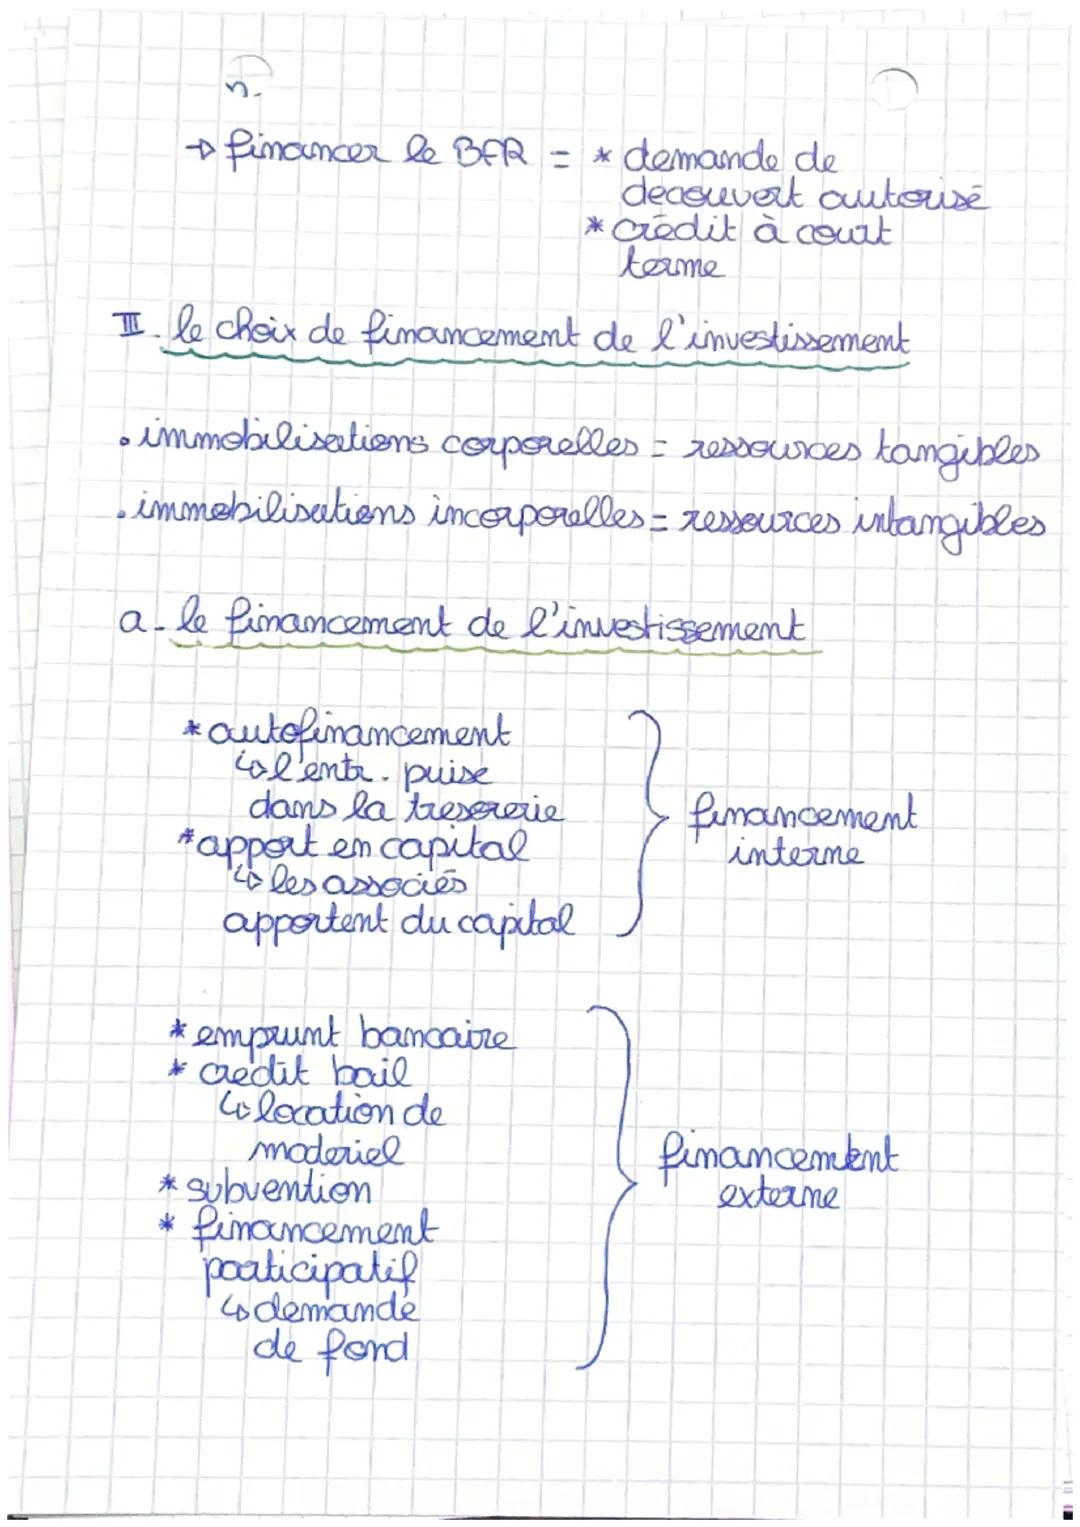 n.
→ financer le BFR = * demande de
decouvert autorisé
* crédit à court
terme
II. le choix de financement de l'investissement
. immobilisations corporelles = ressources tangibles
. immobilisations incorporelles = ressources intangibles
a. le financement de l'investissement
* autofinancement
↳ l'entr. puise
dans la tresorerie
* apport en capital
↳ les associés
apportent du capital
financement
interne
* emprunt bancaire
* crédit bail
↳ location de
materiel
* subvention
* financement
participatif
↳ demande
de fond
financement
externe